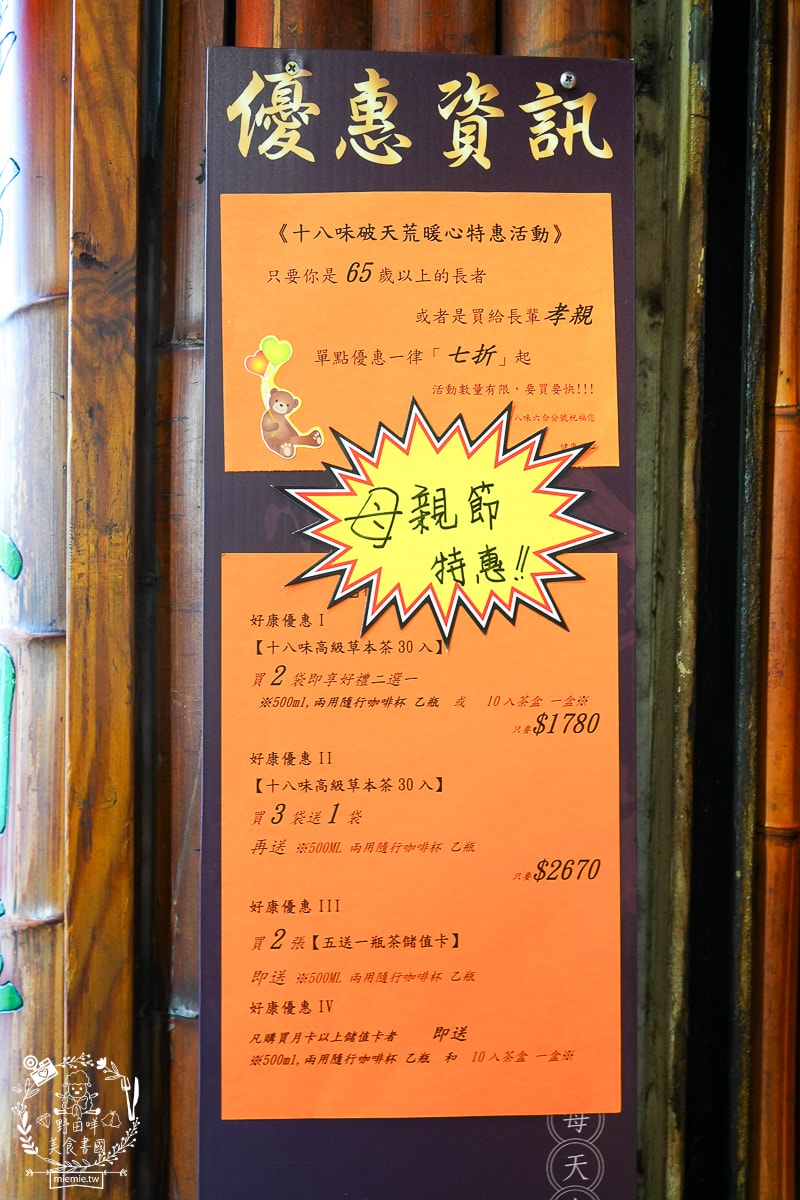 優惠資訊
《十八味破天荒暖心特惠活動》
只要你是 65 歲以上的長者
或者是買給長輩孝親
單點優惠一律「七折」起
活動數量有限，要買要快!!!
八味六合分號祝福您
母親節
特惠!!
好康優惠 I
【十八味高級草本茶 30 入】
買 2 袋即享好禮二選一
※500ml,兩用隨行咖啡杯 乙瓶 或 10 入茶盒 一盒※
只要$1780
好康優惠 II
【十八味高級草本茶 30 入】
買 3 袋送 1 袋
再送 ※500ML 兩用隨行咖啡杯 乙瓶
只要$2670
好康優惠 III
買 2 張【五送一瓶茶儲值卡】
即送 ※500ML 兩用隨行咖啡杯 乙瓶
好康優惠 IV
凡購買月卡以上儲值卡者 即送
※500ml,兩用隨行咖啡杯 乙瓶 和 10 入茶盒 一盒※
每天
野田咩
美食書國
miemie.tw